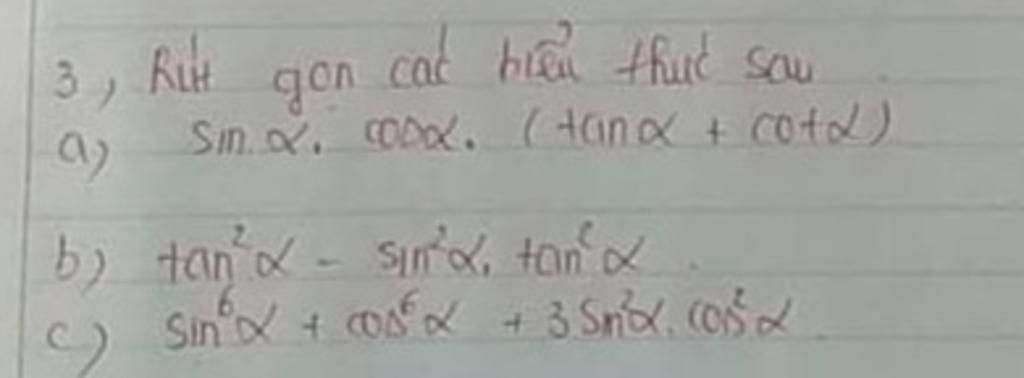 3, Rút gọn các biểu thức sau
a) sin α. cosα. (tanα + cotα)
b) tan²α - sin²α. tan²α.
c) sin⁶α + cos⁶α + 3 sin²α. cos²α